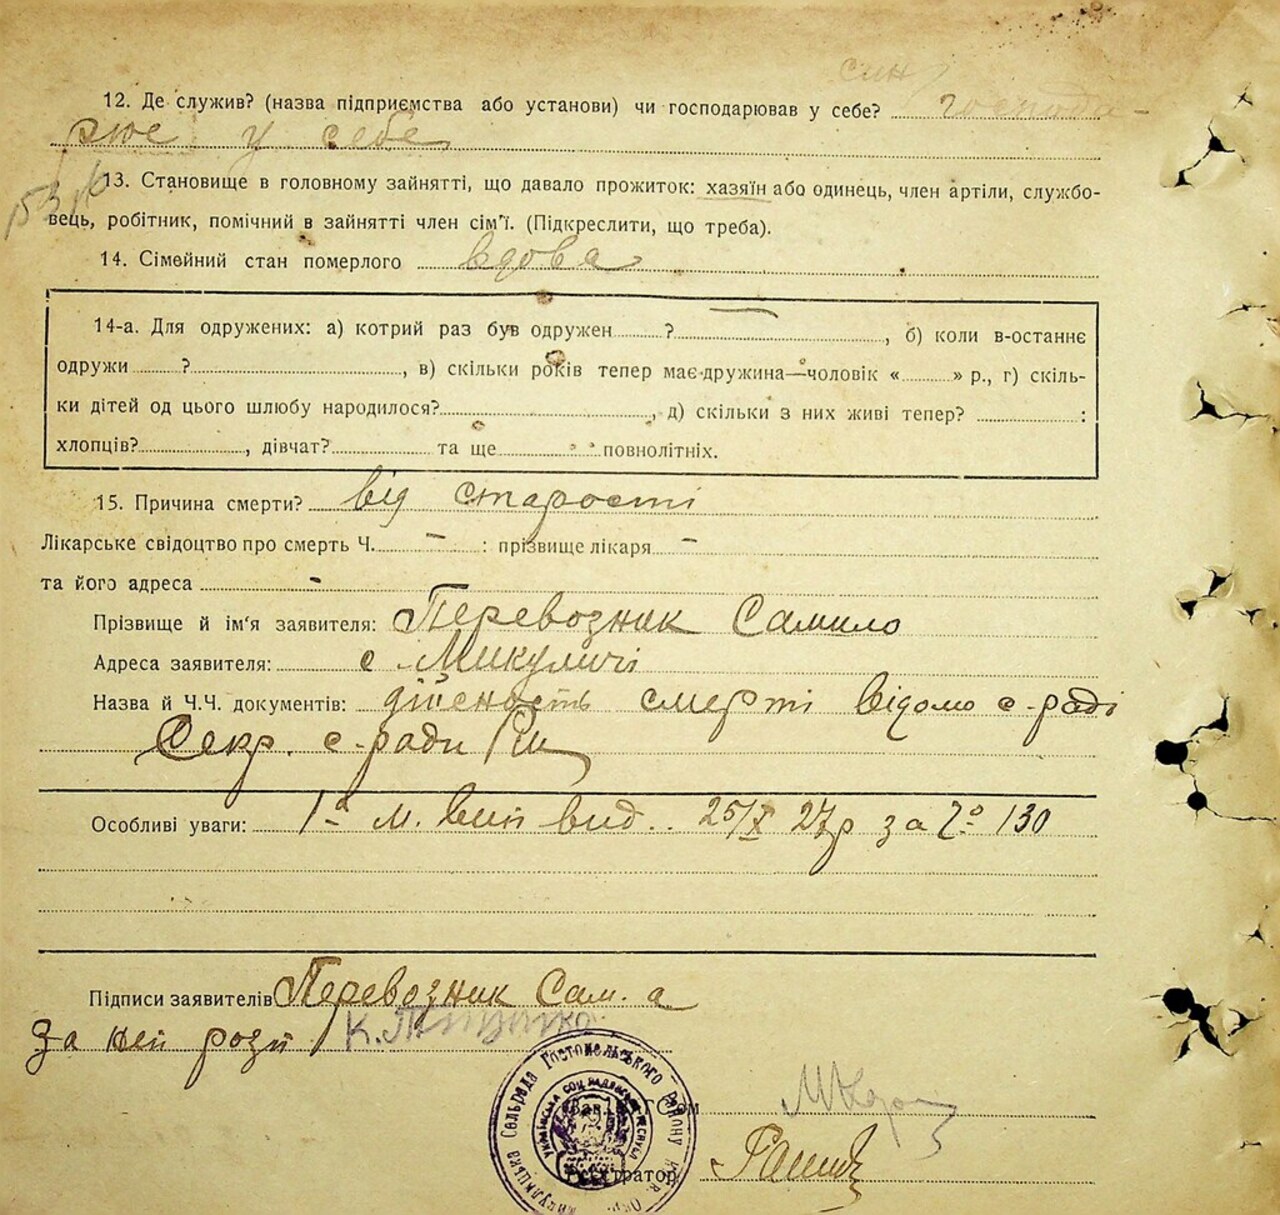 син
12. Де служив? (назва підприємства або установи) чи господарював у себе? господа-
рює у себе
13. Становище в головному зайнятті, що давало прожиток: хазяїн або одинець, член артіли, службо-
вець, робітник, помічний в зайнятті член сім'ї. (Підкреслити, що треба).
14. Сімейний стан померлого вдова
14-а. Для одружених: а) котрий раз був одружен ? , б) коли в-останнє
одружи ? , в) скільки років тепер має дружина—чоловік « » р., г) скіль-
ки дітей од цього шлюбу народилося? , д) скільки з них живі тепер? :
хлопців? , дівчат? та ще повнолітніх.
15. Причина смерти? від старості
Лікарське свідоцтво про смерть Ч. - : прізвище лікаря -
та його адреса -
Прізвище й ім'я заявителя: Перевозник Самило
Адреса заявителя: с. Микуличі
Назва й Ч.Ч. документів: дійсность смерті відомо с-раді
Секр. с-ради
Особливі уваги: м. вид.. 25/X 27р за 130
Підписи заявителів Перевозник Сам. а
За неп розп
Сельрада Гостомельського району
Реєстратор